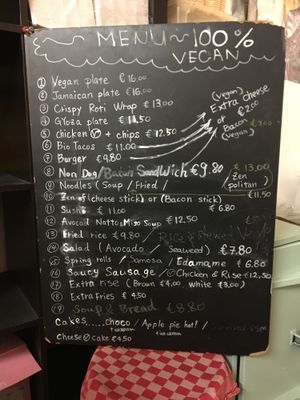 MENU~100%
VEGAN
① Vegan plate €16.00
② Jamaican plate €16.00
③ Crispy Roti Wrap €13.00
④ Gyoza plate €11.50
⑤ chicken Ⓥ + chips €12.50
⑥ Bio Tacos €11.00
⑦ Burger €9.80
(vegan)
Extra cheese
or €2.00
Bacon
(vegan)
⑧ Non Dog/Bacon Sandwich €9.80
⑨ Noodles (Soup / Fried / Zen politan) €13.00
⑩ Zen (cheese stick) or (Bacon stick) €11.50
⑪ Sushi €11.00 €6.80
⑫ Avocad Natto & Miso Soup €12.50
⑬ Fried rice €9.80
⑭ Salad (Avocado / Seaweed) €7.80
⑮ Spring rolls / Samosa / Edamame €6.80
⑯ Saucy Sausage / Ⓥ Chicken & Rise €12,50
⑰ Extra rise (Brown €4.00 white €3.00)
⑱ Extra fries €4.50
⑲ Soup & Bread €8.80
Cakes.....choco / Apple pie hot! /
cheese Ⓥ cake €4.50